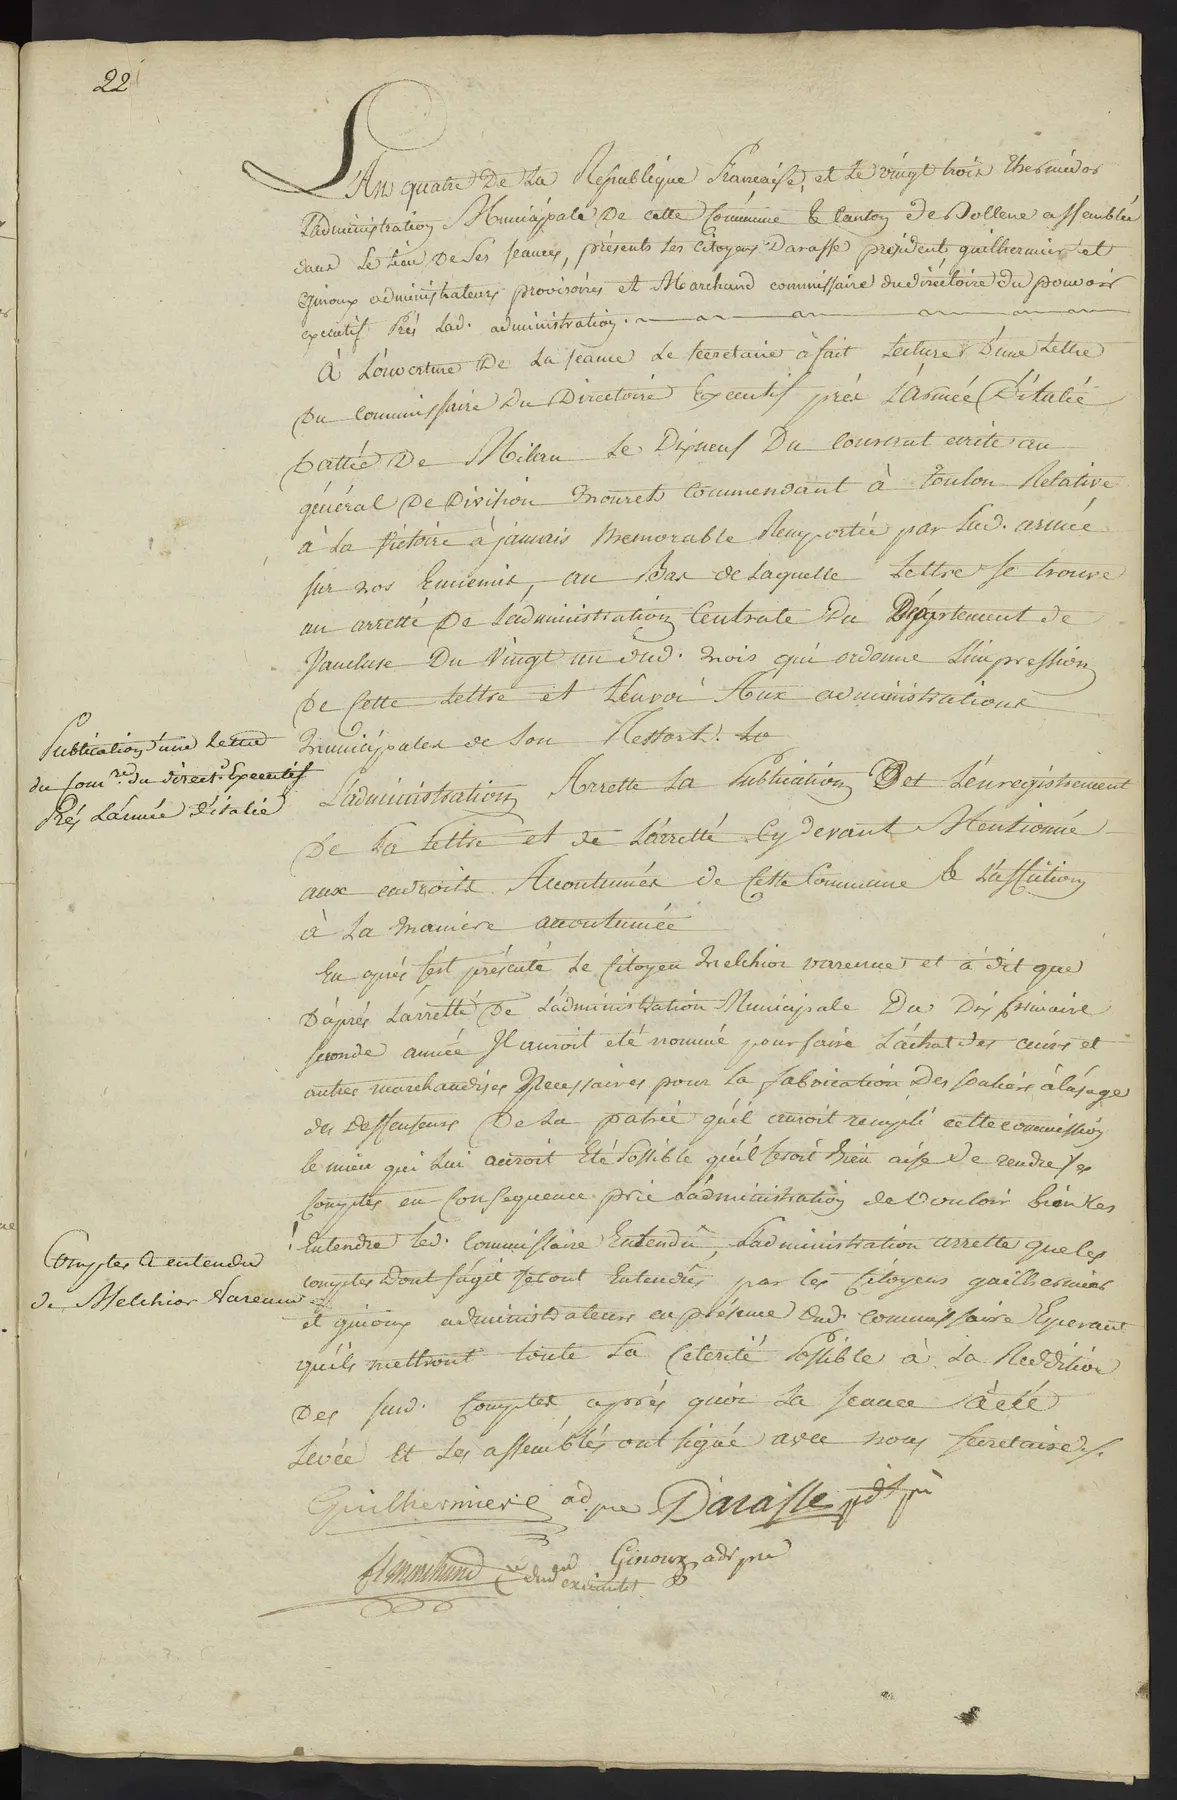 22
L'An quatre De La Republique Francaise, et Le vingt trois thermidor
L'administration Municipale De cette Commune & Canton de Bollene assemblée
dans Le Lieu De Ses Seances, présents les Citoyens Darasse président, guilhermier et
Ginoux administrateurs provisoires et Marchand commissaire du directoire du pouvoir
executif Prés Lad. administration.
À L'ouverture De La seance Le secretaire à fait Lecture D'une Lettre
Du Commissaire Du Directoire Executif prés L'armée D'italie
Dattée De Milan Le Dixneuf Du Courant ecrite au
général De Division Mouret Commendant à Toulon Relative
à La victoire à jamais Memorable Remportée par Lad. armée
sur nos Ennemis, au Bas de Laquelle Lettre se trouve
un arretté De L'administration Centrale Du Département de
Vaucluse Du Vingt un dud. mois qui ordonne L'impression
De Cette Lettre et L'envoi Aux administrations
Municipales de Son Ressort. Le
Publication d'une Lettre
du Comm.re du direct.e Executif
Prés L'armée d'italie
L'administration Arrette La Publication et L'enregistrement
De La Lettre et de L'arretté Cy devant Mentionné
aux endroits Acoutumés de Cette Commune & L'affition
à La maniere acoutumée
En aprés s'est présenté Le Citoyen Melchior varenne et à dit que
D'aprés L'arretté De L'administration Municipale Du Dix frimaire
seconde année Il auroit eté nommé pour faire L'achat des cuirs et
autres marchandises Necessaires pour La fabrication Des souliers à L'usage
des Deffenseurs De La patrie qu'il auroit rempli cette commission
le mieu qui Lui auroit Eté Possible qu'il seroit Bien aise de rendre ses
Comptes en Consequence prie L'administration de Vouloir bien Les
Comptes à entendre
de Melchior Varenne
Entendre Led. Commissaire Entendu, L'administration arrette que les
comptes Dont s'agit seront Entendus par les Citoyens guilhermier
et ginoux administrateurs en présence dud. commissaire Esperant
qu'ils mettront toute La Celerité Possible à La Reddition
Des susd. Comptes aprés quoi La seance à été
Levée et Les assemblés ont signé avec nous secretaire.
Guilhermier ad. pre Darasse pdt
fs marchand Ginoux adr pre